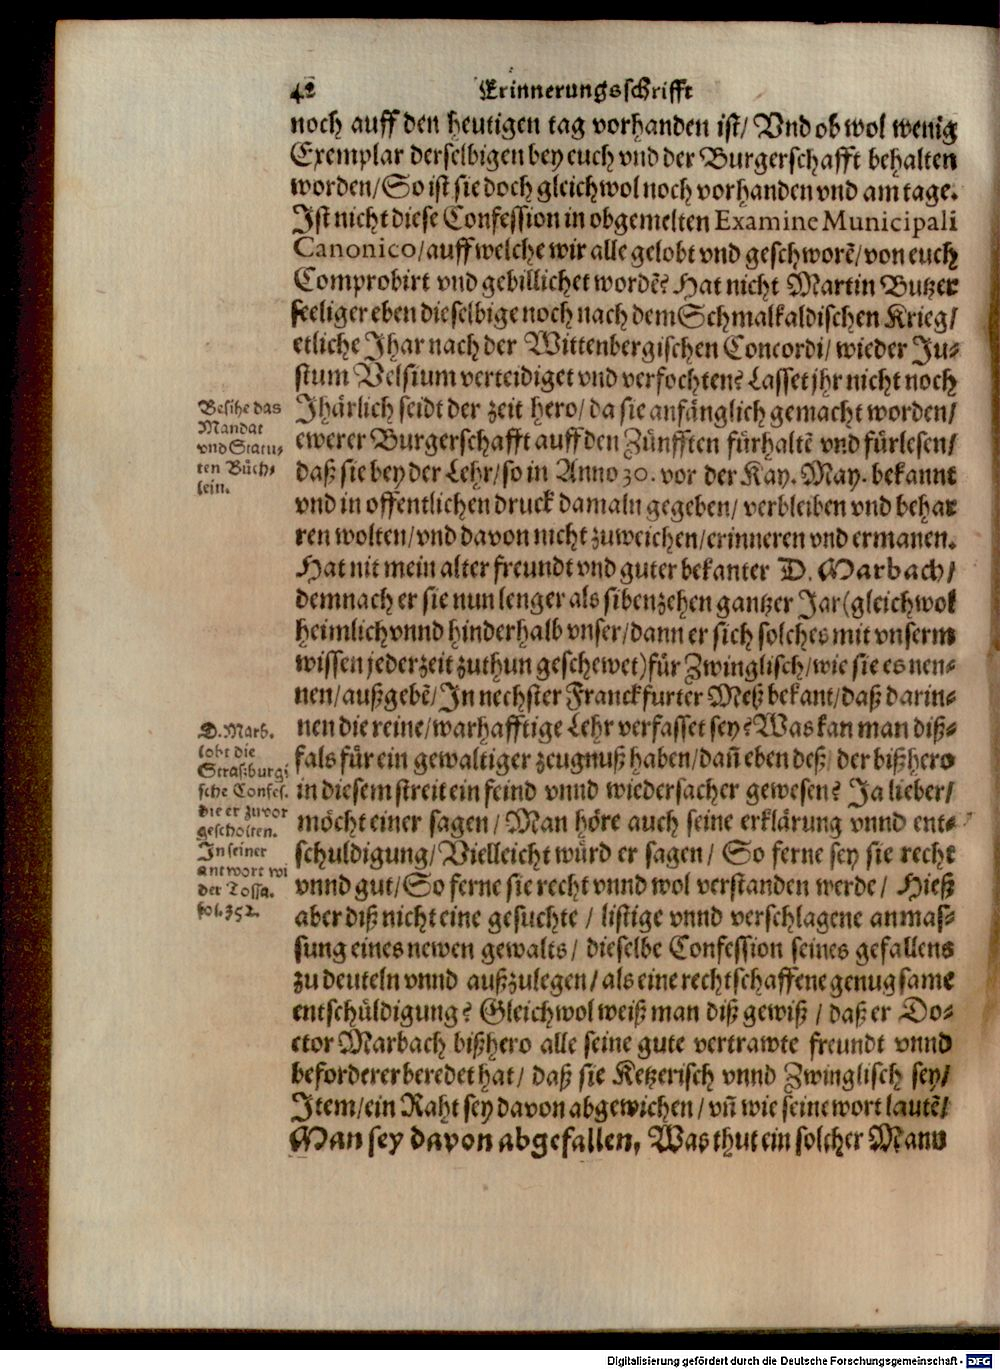 42 Erinnerungsschrifft
noch auff den heutigen tag vorhanden ist/ Vnd ob wol wenig
Exemplar derselbigen bey euch vnd der Burgerschafft behalten
worden/ So ist sie doch gleichwol noch vorhanden vnd am tage.
Ist nicht diese Confession in obgemelten Examine Municipali
Canonico/ auff welche wir alle gelobt vnd geschworẽ/ von euch
Comprobirt vnd gebillichet wordẽ? Hat nicht Martin Butzer
seeliger eben dieselbige noch nach dem Schmalkaldischen Krieg/
etliche Jhar nach der Wittenbergischen Concordi/ wieder Ju-
stum Velsium verteidiget vnd verfochten? Lasset jhr nicht noch
Jhärlich seidt der zeit hero/ da sie anfänglich gemacht worden/
ewerer Burgerschafft auff den Zünfften fürhaltẽ vnd fürlesen/
daß sie bey der Lehr/ so in Anno 30. vor der Kay. May. bekannt
vnd in offentlichen druck damaln gegeben/ verbleiben vnd behar
ren wolten/ vnd davon nicht zuweichen/ erinneren vnd ermanen.
Hat nit mein alter freundt vnd guter bekanter D. Marbach/
demnach er sie nun lenger als sibenzehen gantzer Jar (gleichwol
heimlich vnnd hinderhalb vnser/ dann er sich solches mit vnserm
wissen jederzeit zuthun geschewet) für Zwinglisch/ wie sie es nen-
nen/ außgebẽ/ In nechster Franckfurter Meß bekant/ daß darin-
nen die reine/ warhafftige Lehr verfasset sey? Was kan man diß-
fals für ein gewaltiger zeugnuß haben/ dañ eben deß/ der bißhero
in diesem streit ein feind vnnd wiedersacher gewesen? Ja lieber/
möcht einer sagen/ Man höre auch seine erklärung vnnd ent-
schuldigung/ Vielleicht würd er sagen/ So ferne sey sie recht
vnnd gut/ So ferne sie recht vnnd wol verstanden werde/ Hieß
aber diß nicht eine gesuchte/ listige vnnd verschlagene anmas-
sung eines newen gewalts/ dieselbe Confession seines gefallens
zu deuteln vnnd außzulegen/ als eine rechtschaffene genugsame
entschüldigung? Gleichwol weiß man diß gewiß/ daß er Do-
ctor Marbach bißhero alle seine gute vertrawte freundt vnnd
beforderer beredet hat/ daß sie Ketzerisch vnnd Zwinglisch sey/
Item/ ein Raht sey davon abgewichen/ vñ wie seine wort lautẽ/
Man sey davon abgefallen, Was thut ein solcher Mann
Besihe das
Mandat
vnd Statu-
ten Büch-
lein.
D. Marb.
lobt die
Straßburgi
sche Confes.
die er zuvor
gescholten.
In seiner
antwort wi
der Tossa.
fol. 352.
Digitalisierung gefördert durch die Deutsche Forschungsgemeinschaft - DFG